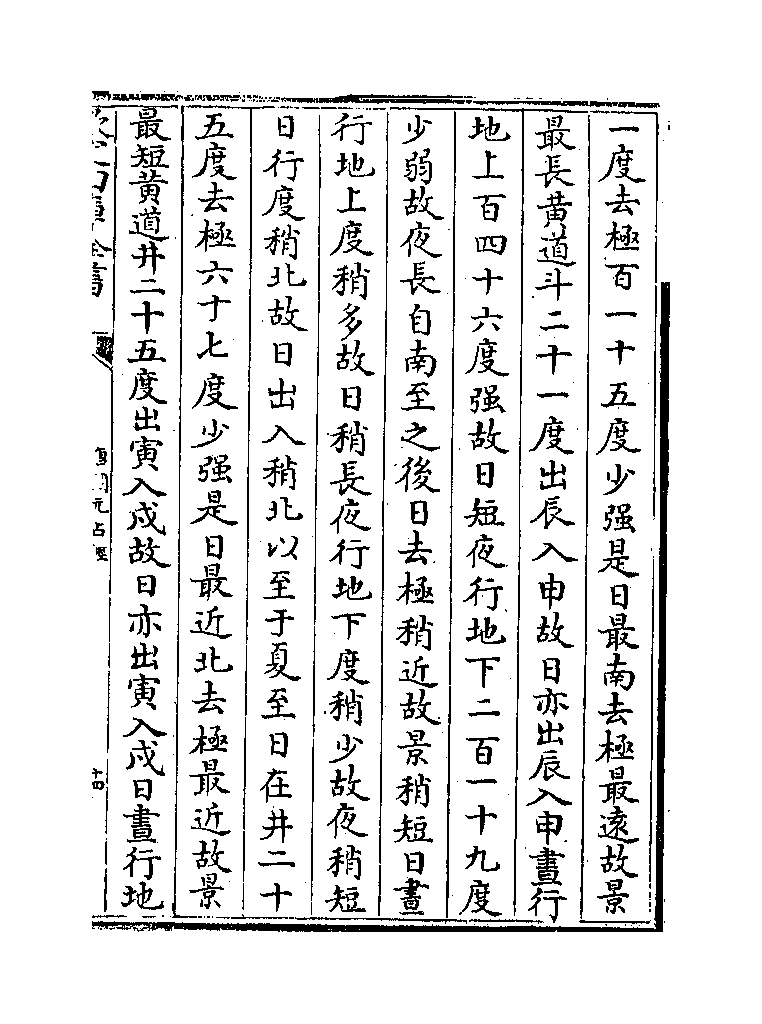 一度去極百一十五度少强是日最南去極最遠故景
最長黄道斗二十一度出辰入申故日亦出辰入申晝行
地上百四十六度强故日短夜行地下二百一十九度
少弱故夜長自南至之後日去極稍近故景稍短日晝
行地上度稍多故日稍長夜行地下度稍少故夜稍短
日行度稍北故日出入稍北以至于夏至日在井二十
五度去極六十七度少强是日最近北去極最近故景
最短黄道井二十五度出寅入戍故日亦出寅入戍日晝行地
欽定四庫全書
唐開元占經
十四